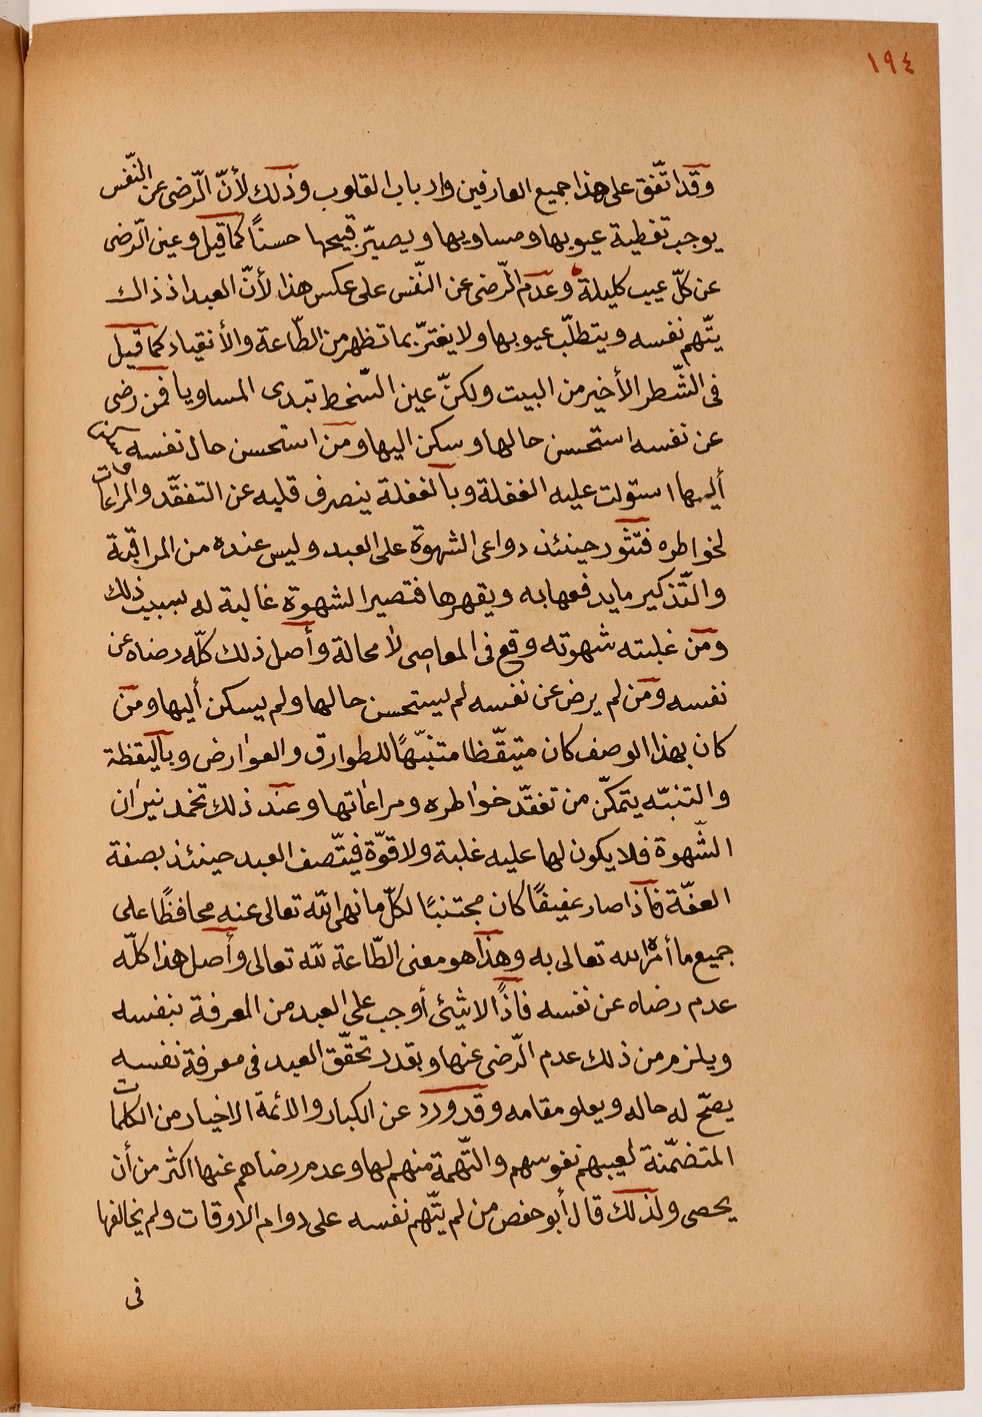 ١٩٤
وقد اتّفق على هذا جميع العارفين وارباب القلوب وذلك لأنّ الرّضى عن النّفس
يوجب تغطية عيوبها ومساويها ويصيّر قبيحها حسنًا كما قيل وعين الرّضى
عن كلّ عيب كليلة وعدم الرّضى عن النّفس على عكس هذا لأنّ العبد اذ ذاك
يتّهم نفسه ويتطلّب عيوبها ولا يغترّ بما تظهر من الطّاعة والأنقياد كما قيل
فى الشّطر الأخير من البيت ولكنّ عين السّخط تبدى المساويا فمن رضى
عن نفسه استحسن حالها وسكن اليها ومن استحسن حال نفسه وسكن
أليها استولت عليه الغفلة وبالغفلة ينصرف قلبه عن التفقّد والمراعات
لخواطره فتثور حينئذ دواعى الشهوة على العبد وليس عنده من المراقبة
والتّذكير ما يدفعها به ويقهرها فتصير الشهوة غالبة له بسبب ذلك
ومن غلبته شهوته وقع فى المعاصى لا محالة وأصل ذلك كلّه رضاه عن
نفسه ومن لم يرض عن نفسه لم يستحسن حالها ولم يسكن أليها ومن
كان بهذا الوصف كان متيقّظا متنبّهًا للطوارق والعوارض وباليقظة
والتنبّه يتمكّن من تفقّد خواطره ومراعاتها وعند ذلك تخمد نيران
الشّهوة فلا يكون لها عليه غلبة ولا قوّة فيتّصف العبد حينئذ بصفة
العفّة فأذا صار عفيفًا كان مجتنبًا لكلّ ما نهى الله تعالى عنه محافظًا على
جميع ما أمره الله تعالى به وهذا هو معنى الطّاعة لله تعالى وأصل هذا كلّه
عدم رضاه عن نفسه فاذًا لا شيئى أوجب على العبد من المعرفة بنفسه
ويلزم من ذلك عدم الرّضى عنها وبقدر تحقّق العبد فى معرفة نفسه
يصحّ له حاله ويعلو مقامه وقد ورد عن الكبار والائمة الاخيار من الكلمات
المتضمّنة لعيبهم نفوسهم والتّهمة منهم لها وعدم رضاهم عنها اكثر من أن
يحصى ولذلك قال أبو حفص من لم يتّهم نفسه على دوام الاوقات ولم يخالفها
فى